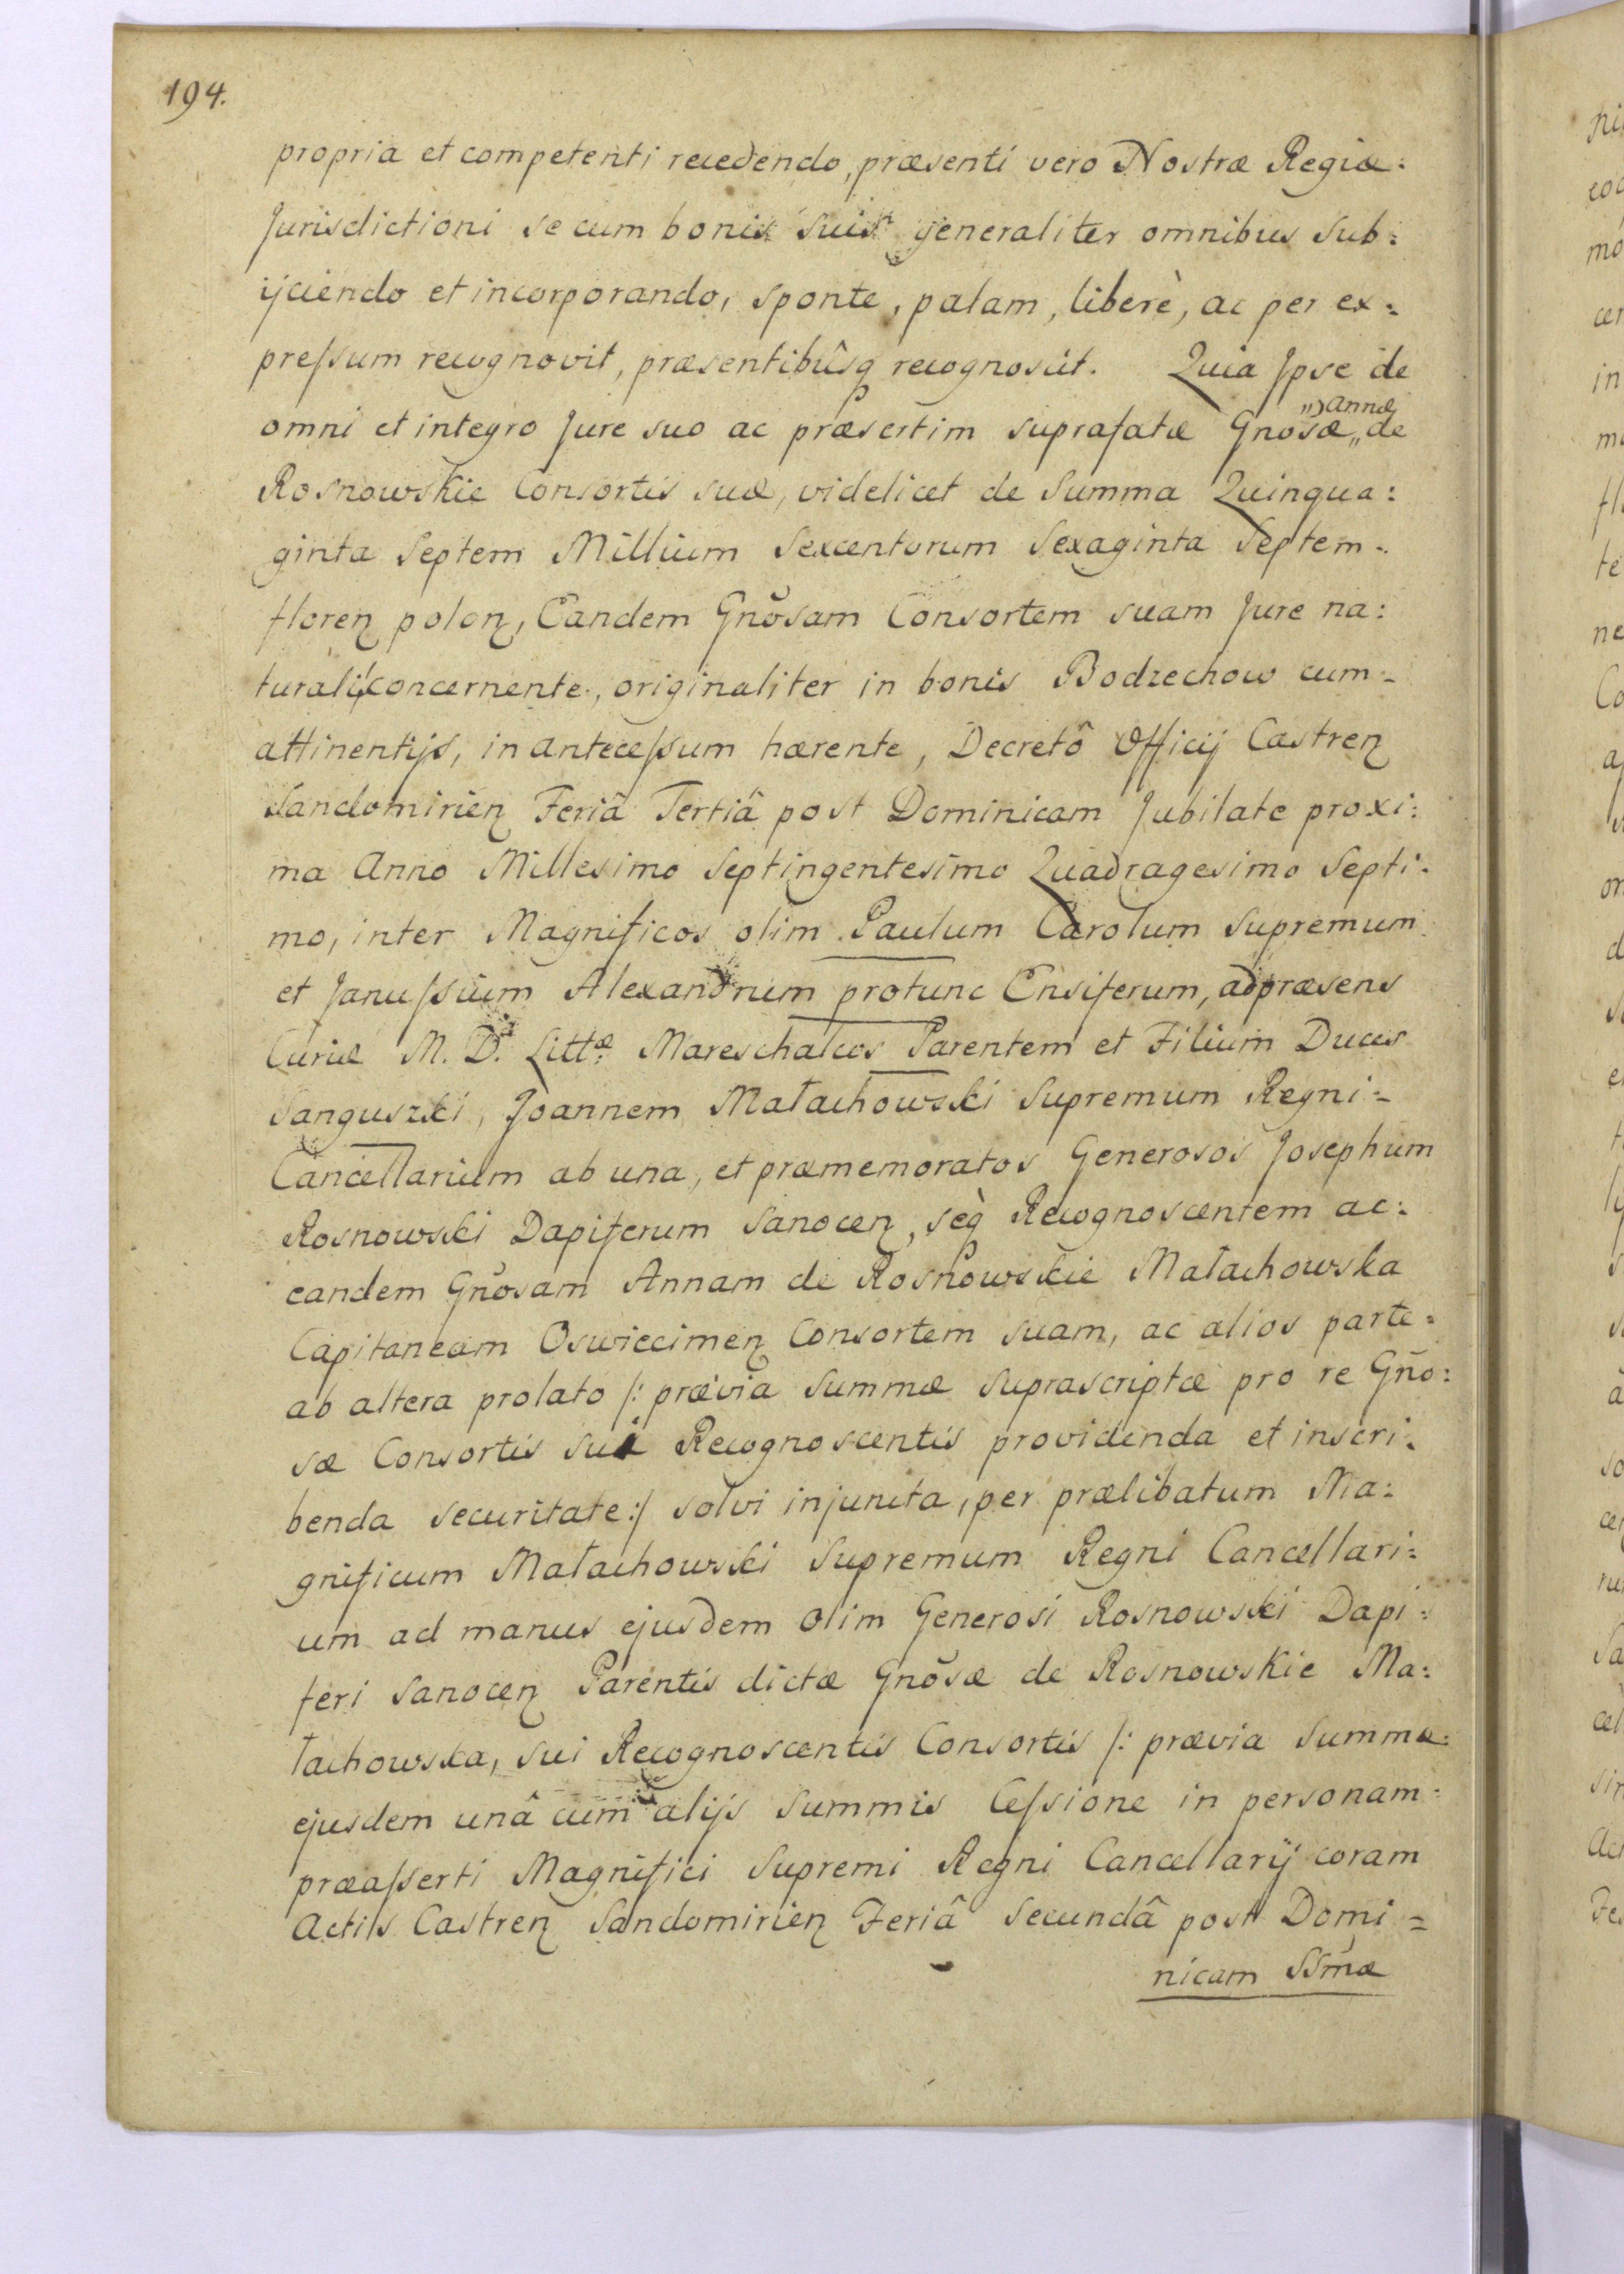 194.
propria et competenti recedendo, præsenti vero Nostræ Regiæ:
Jurisdictioni se cum bonis suis generaliter omnibus sub:
ijciendo et incorporando, sponte, palam, liberè, ac per ex:
preſsum recognovit, præsentibûsq recognoscit. Quia Jpse de
omni et integro Jure suo ac præsertim suprafatæ Gnõsæ „ Annæ „ de
Rosnowskie Consortis suæ, videlicet de Summa Quinqua:
ginta Septem Millium Sexcentorum Sexaginta Septem.
floren polon, Eandem Gnõsam Consortem suam Jure na:
turali concernente, originaliter in bonis Bodzechow cum-
attinentijs, in anteceſsum hærente, Decretô Officij Castren
Sandomirien Feriâ Tertiâ post Dominicam Jubilate proxi:
ma Anno Millesimo Septingentesimo Quadragesimo Septi:
mo, inter Magnificos olim Paulum Carolum Supremum
et Januſsium Alexandrum protunc Ensiferum, ad præsens
Curiæ M. D. Littæ Mareschalcos Parentem et Filium Duces
Sanguszki, Joannem Małachowski Supremum Regni-
Cancellarium ab una, et præmemoratos Generosos Josephum
Rosnowski Dapiferum Sanocen, seq̀ Recognoscentem ac:
eandem Gnõsam Annam de Rosnowskie Małachowska
Capitaneam Oswiecimen Consortem suam, ac alios parte-
ab altera prolato /: prævia Summæ suprascriptæ pro re Gño:
sæ Consortis sui Recognoscentis providenda et inscri:
benda securitate :/ solvi injuncta, per prælibatum Ma:
gnificum Małachowski Supremum Regni Cancellari:
um ad manus ejusdem olim Generosi Rosnowski Dapi:
feri Sanocen Parentis dictæ Gnõsæ de Rosnowskie Ma:
łachowska, sui Recognoscentis Consortis /: prævia Summæ-
ejusdem unâ cum alijs Summis Ceſsione in personam-
præaſserti Magnifici Supremi Regni Cancellarij coram
Actis Castren Sandomirien Feriâ Secundâ post Domi=
nicam SSmæ